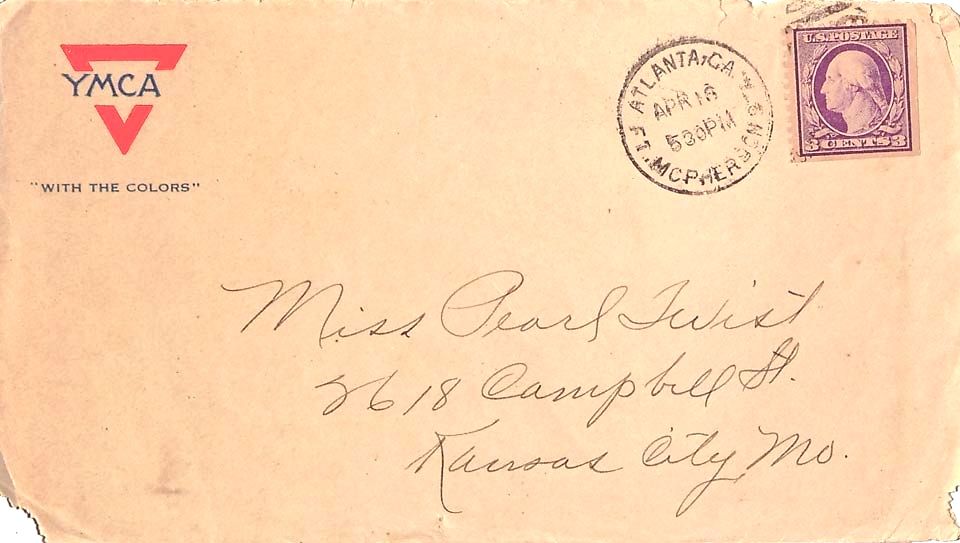 YMCA
"WITH THE COLORS"
ATLANTA, GA.
APR 16
530PM
MCPHERSON
U.S. POSTAGE
3 CENTS 3
Miss Pearl Twist
2618 Campbell St.
Kansas City Mo.